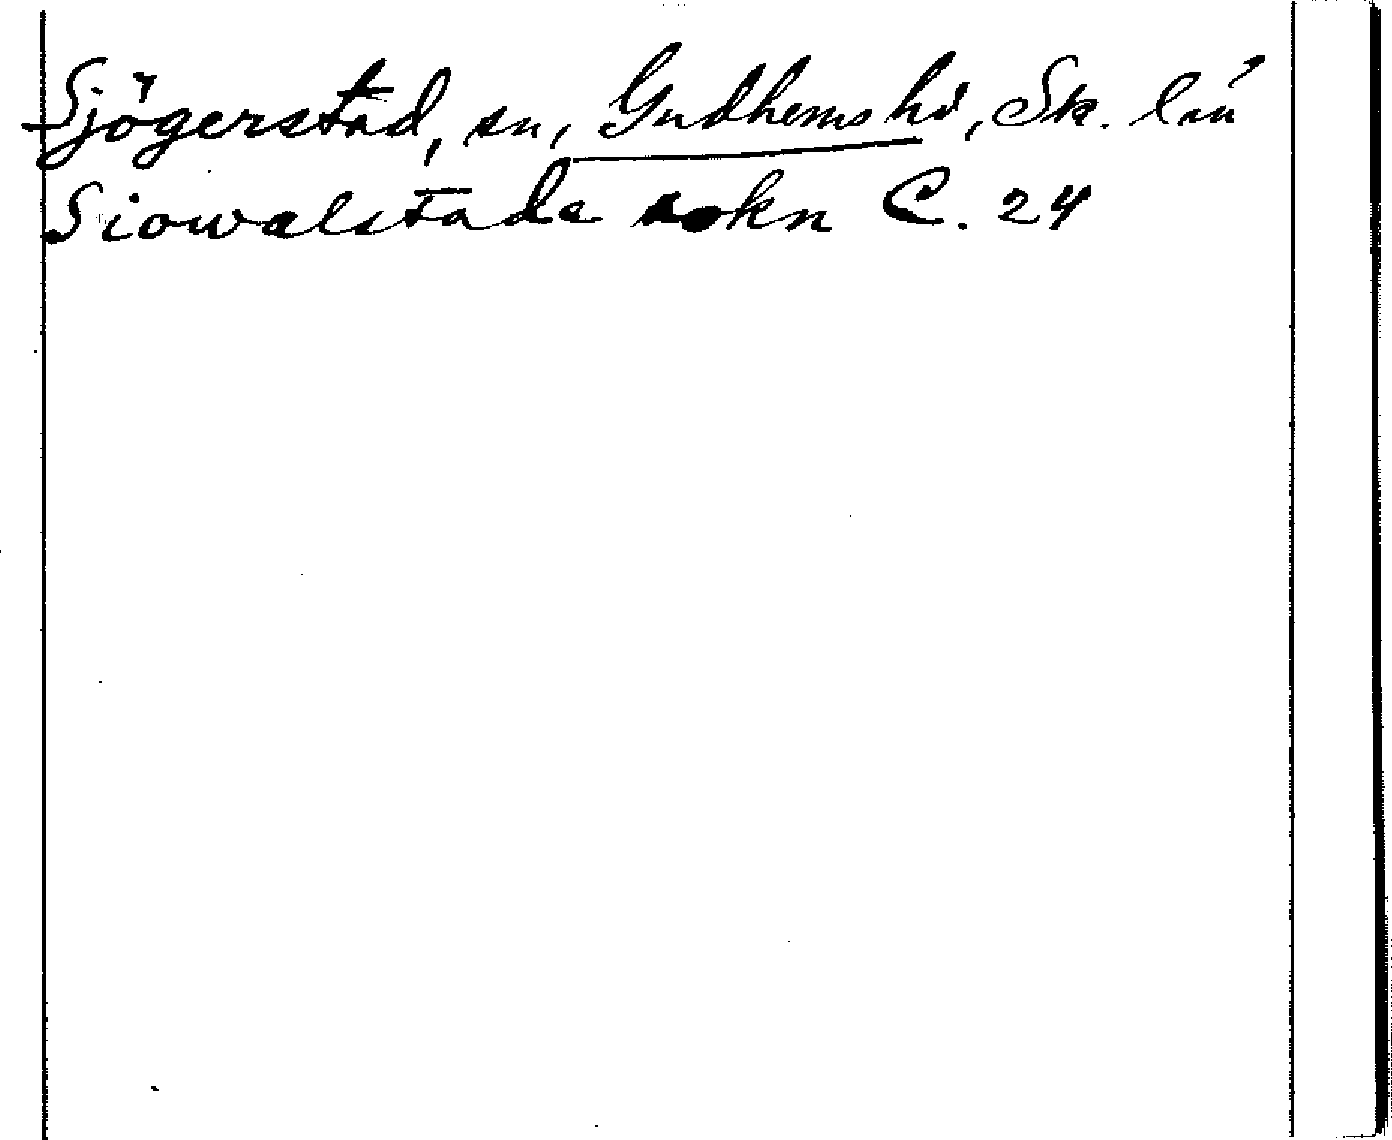 Sjögerstad, sn, Gudhems hd, Sk. län
Siowalstade sokn C. 24